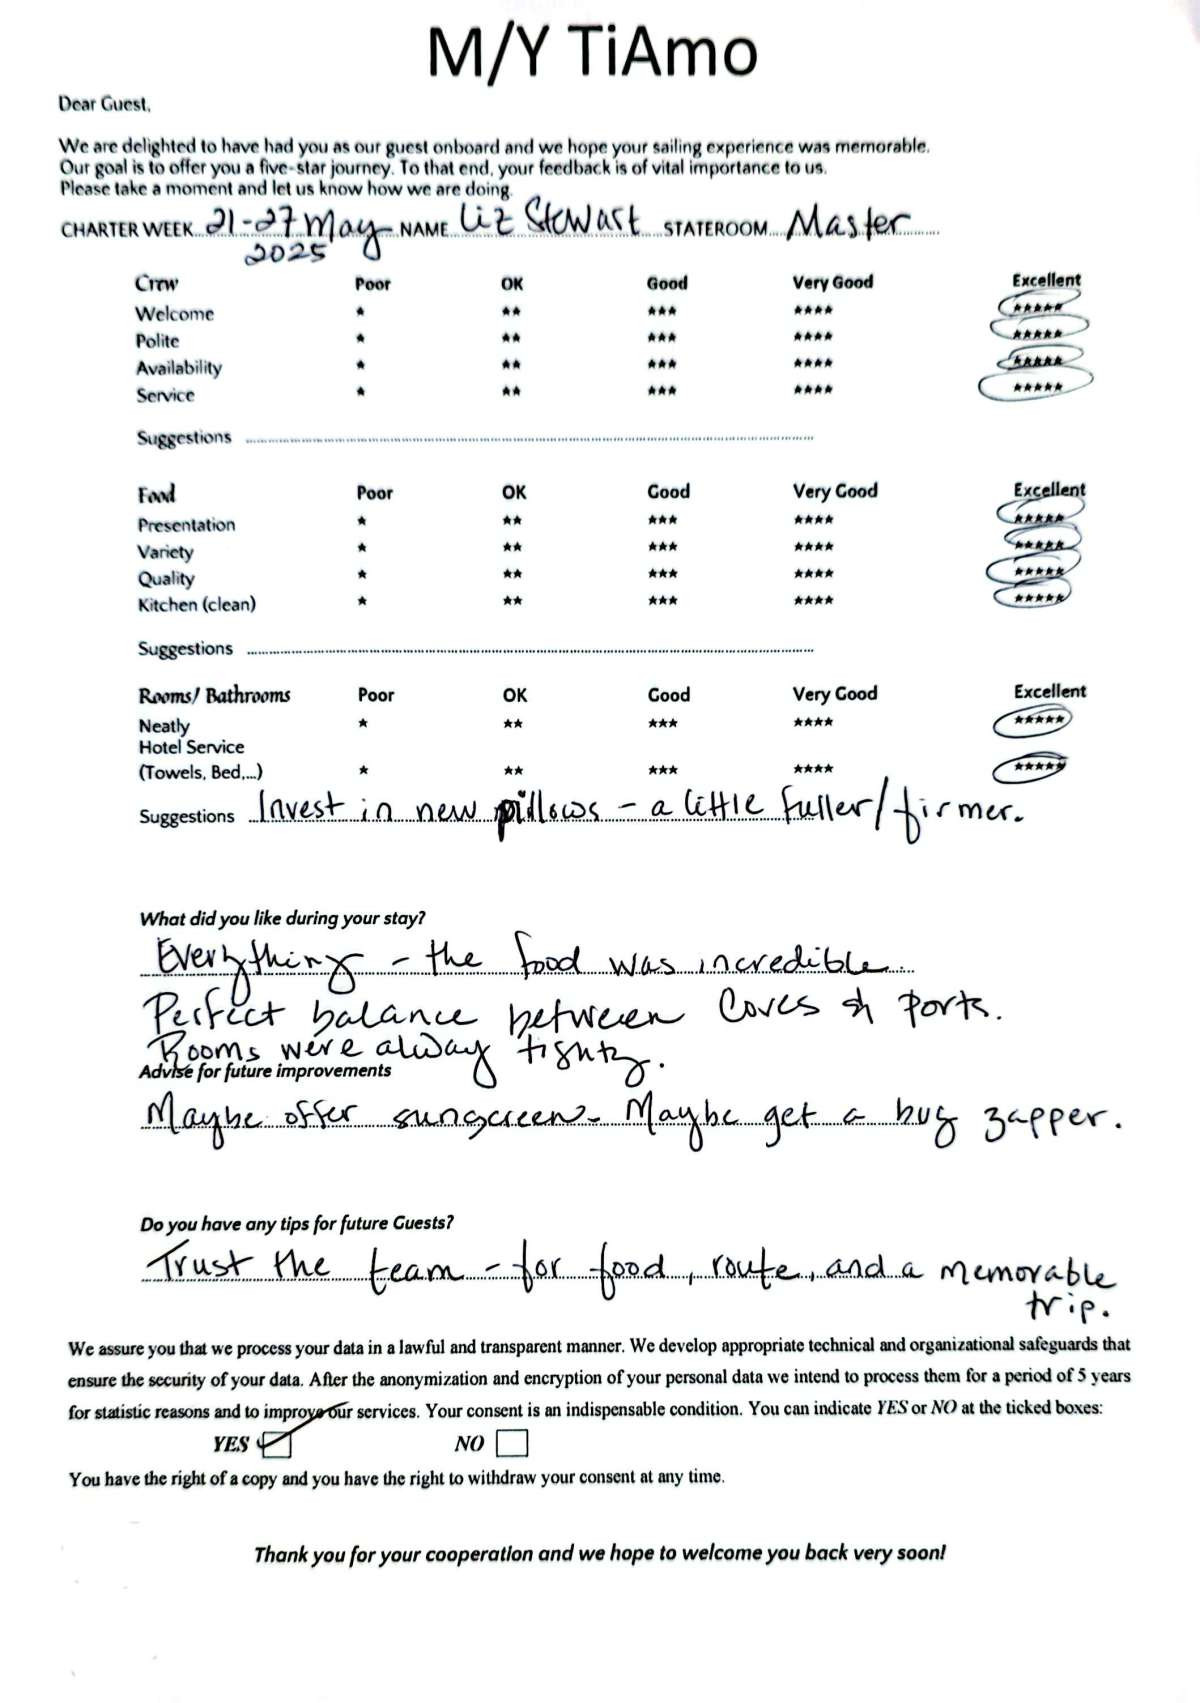 M/Y TiAmo
Dear Guest,
We are delighted to have had you as our guest onboard and we hope your sailing experience was memorable.
Our goal is to offer you a five-star journey. To that end, your feedback is of vital importance to us.
Please take a moment and let us know how we are doing.
CHARTER WEEK 21-27 May NAME Liz Stewart STATEROOM Master
2025
Crew Poor OK Good Very Good Excellent
Welcome * ** *** **** *****
Polite * ** *** **** *****
Availability * ** *** **** *****
Service * ** *** **** *****
Suggestions
Food Poor OK Good Very Good Excellent
Presentation * ** *** **** *****
Variety * ** *** **** *****
Quality * ** *** **** *****
Kitchen (clean) * ** *** **** *****
Suggestions
Rooms/ Bathrooms Poor OK Good Very Good Excellent
Neatly * ** *** **** *****
Hotel Service
(Towels, Bed,...) * ** *** **** *****
Suggestions Invest in new pillows - a little fuller/firmer.
What did you like during your stay?
Everything - the food was incredible.
Perfect balance between Coves & Ports.
Rooms were alway tighty.
Advise for future improvements
Maybe offer sunscreen - Maybe get a bug zapper.
Do you have any tips for future Guests?
Trust the team - for food, route, and a memorable
trip.
We assure you that we process your data in a lawful and transparent manner. We develop appropriate technical and organizational safeguards that
ensure the security of your data. After the anonymization and encryption of your personal data we intend to process them for a period of 5 years
for statistic reasons and to improve our services. Your consent is an indispensable condition. You can indicate YES or NO at the ticked boxes:
YES NO
You have the right of a copy and you have the right to withdraw your consent at any time.
Thank you for your cooperation and we hope to welcome you back very soon!